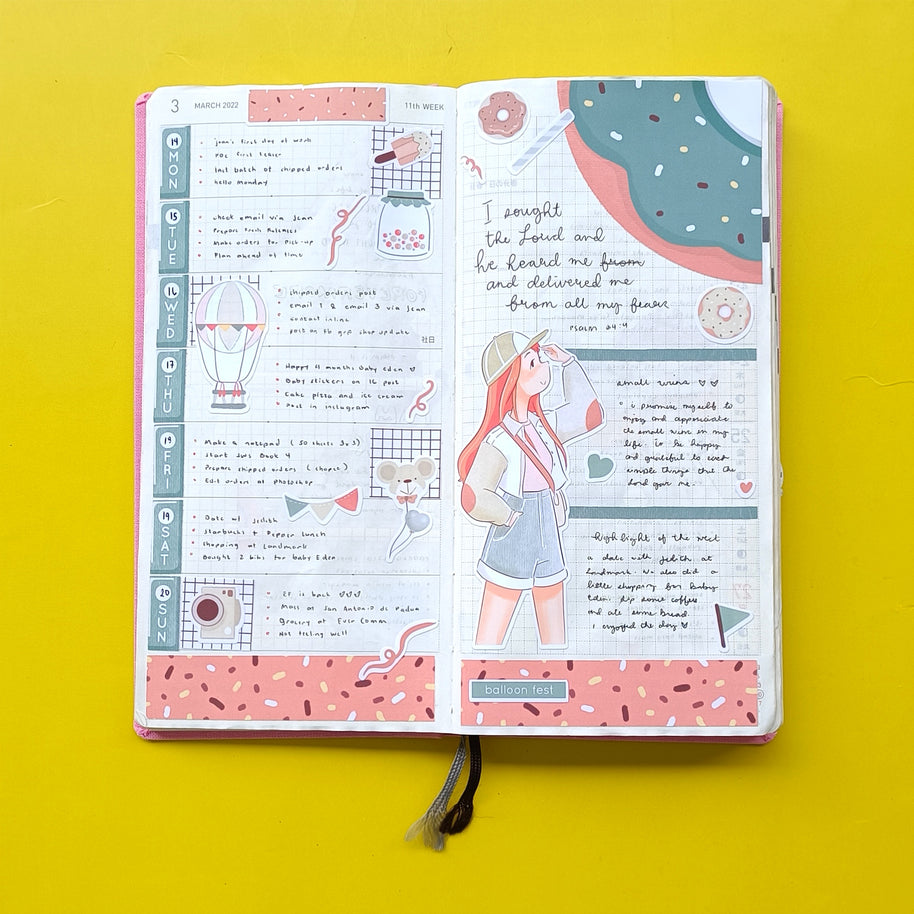 3 MARCH 2022 11th WEEK
14 MON
• Jean's first day of work
• first teaser
• last batch of shipped orders
• hello Monday
15 TUE
• check email via Jean
• Prepare fresh Releases
• Make orders for Pick-up
• Plan ahead of time
16 WED
• shipped orders post
• email 1 & email 3 via Jean
• contact inline
• post on fb grp shop update
社日
17 THU
• Happy 11 months Baby Eden ♡
• Baby stickers on IG post
• Cake pizza and ice cream
• Post in instagram
19 FRI
• Make a notepad ( 50 shts 3x3 )
• Start Book 4
• Prepare shipped orders ( shopee )
• Edit orders at photoshop
19 SAT
• Date w/ Jedith
• Starbucks + Pepper Lunch
• Shopping at Landmark
• Bought 2 bibs for baby Eden
20 SUN
• is back ♡♡♡
• Mass at San Antonio de Padua
• Grocery at Ever Comm
• Not feeling well
I sought
the Lord and
he heard me from
and delivered me
from all my fears
psalm 34:4
small wins ♡♡
• i promise myself to
enjoy and appreciate
the small wins in my
life. To be happy
and grateful to even
simple things that the
Lord gave me.
highlight of the week
a date with Jedith at
landmark. We also did a
little shopping for Baby
Eden. sip some coffee
and ate some bread.
i enjoyed the day ♡
balloon fest